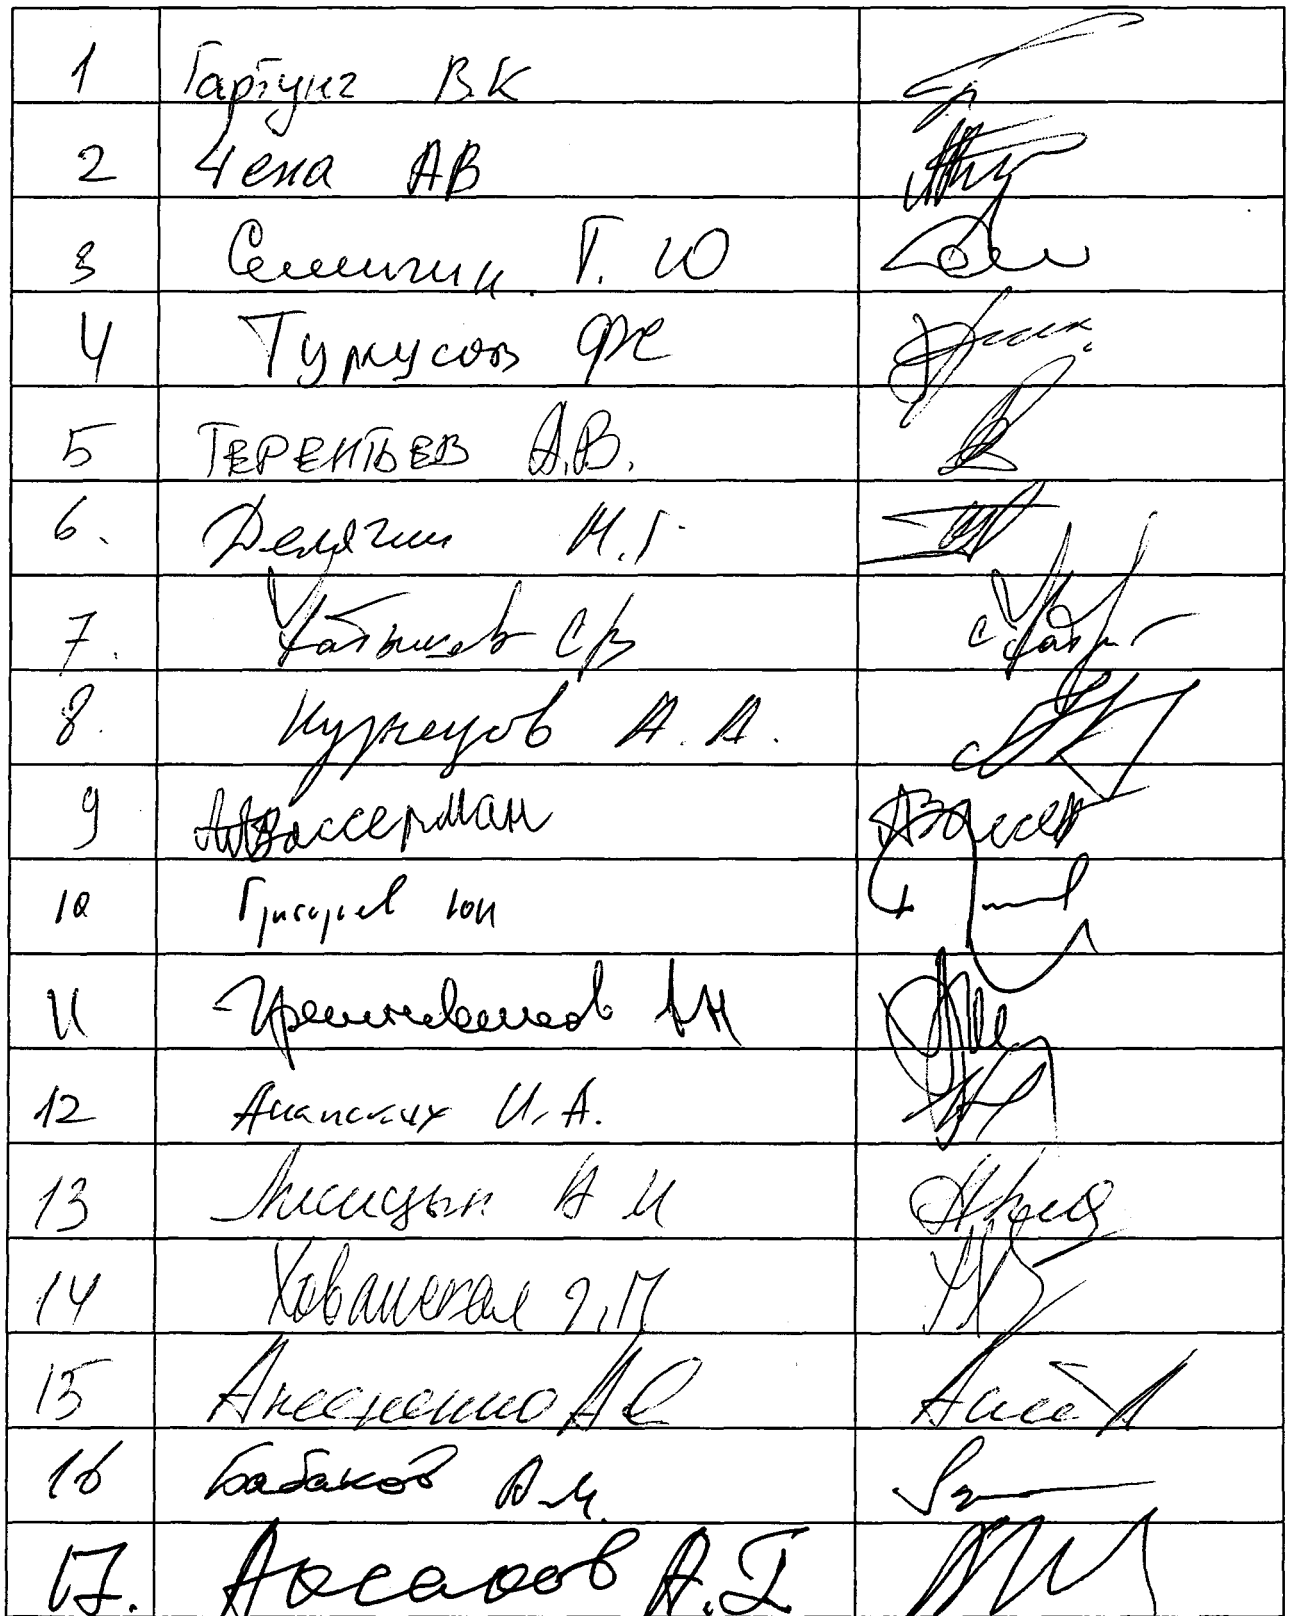 1 Гартунг В.К
2 Чепа АВ
3 Семигин. Г. Ю
4 Тумусов ФС
5 ТЕРЕНТЬЕВ А.В.
6. Делягин М.Г.
7. Кабышев СВ
8. Кузнецов А. А.
9 А.Вассерман
10 Григорьев ЮИ
11 Грешневиков АН
12 Ананских И.А.
13 Лисицын А И
14 Хованская Г.П
15 Аксененко А С
16 Бабаков А.М.
17. Аксаков А.Г